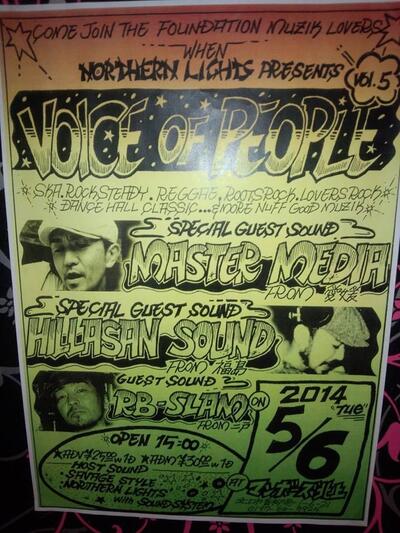 COME JOIN THE FOUNDATION MUZIK LOVERS
WHEN
NORTHERN LIGHTS PRESENTS
VOL.5
VOICE OF PEOPLE
SKA. ROCKSTEADY. REGGAE. ROOTSROCK. LOVERSROCK
DANCE HALL CLASSIC...&MORE NUFF GOOD MUZIK
SPECIAL GUEST SOUND
MASTER MEDIA
FROM
SPECIAL GUEST SOUND
HILLASAN SOUND
FROM 福島
GUEST SOUND
RB-SLAM
FROM 二戸
ON 2014
5/6 "TUE"
OPEN 15:00
ADV ¥2500 W 1D ADM ¥3000 W 1D
HOST SOUND
・SAVAGE STYLE
・NORTHERN LIGHTS
with SOUNDSYSTEM
AT